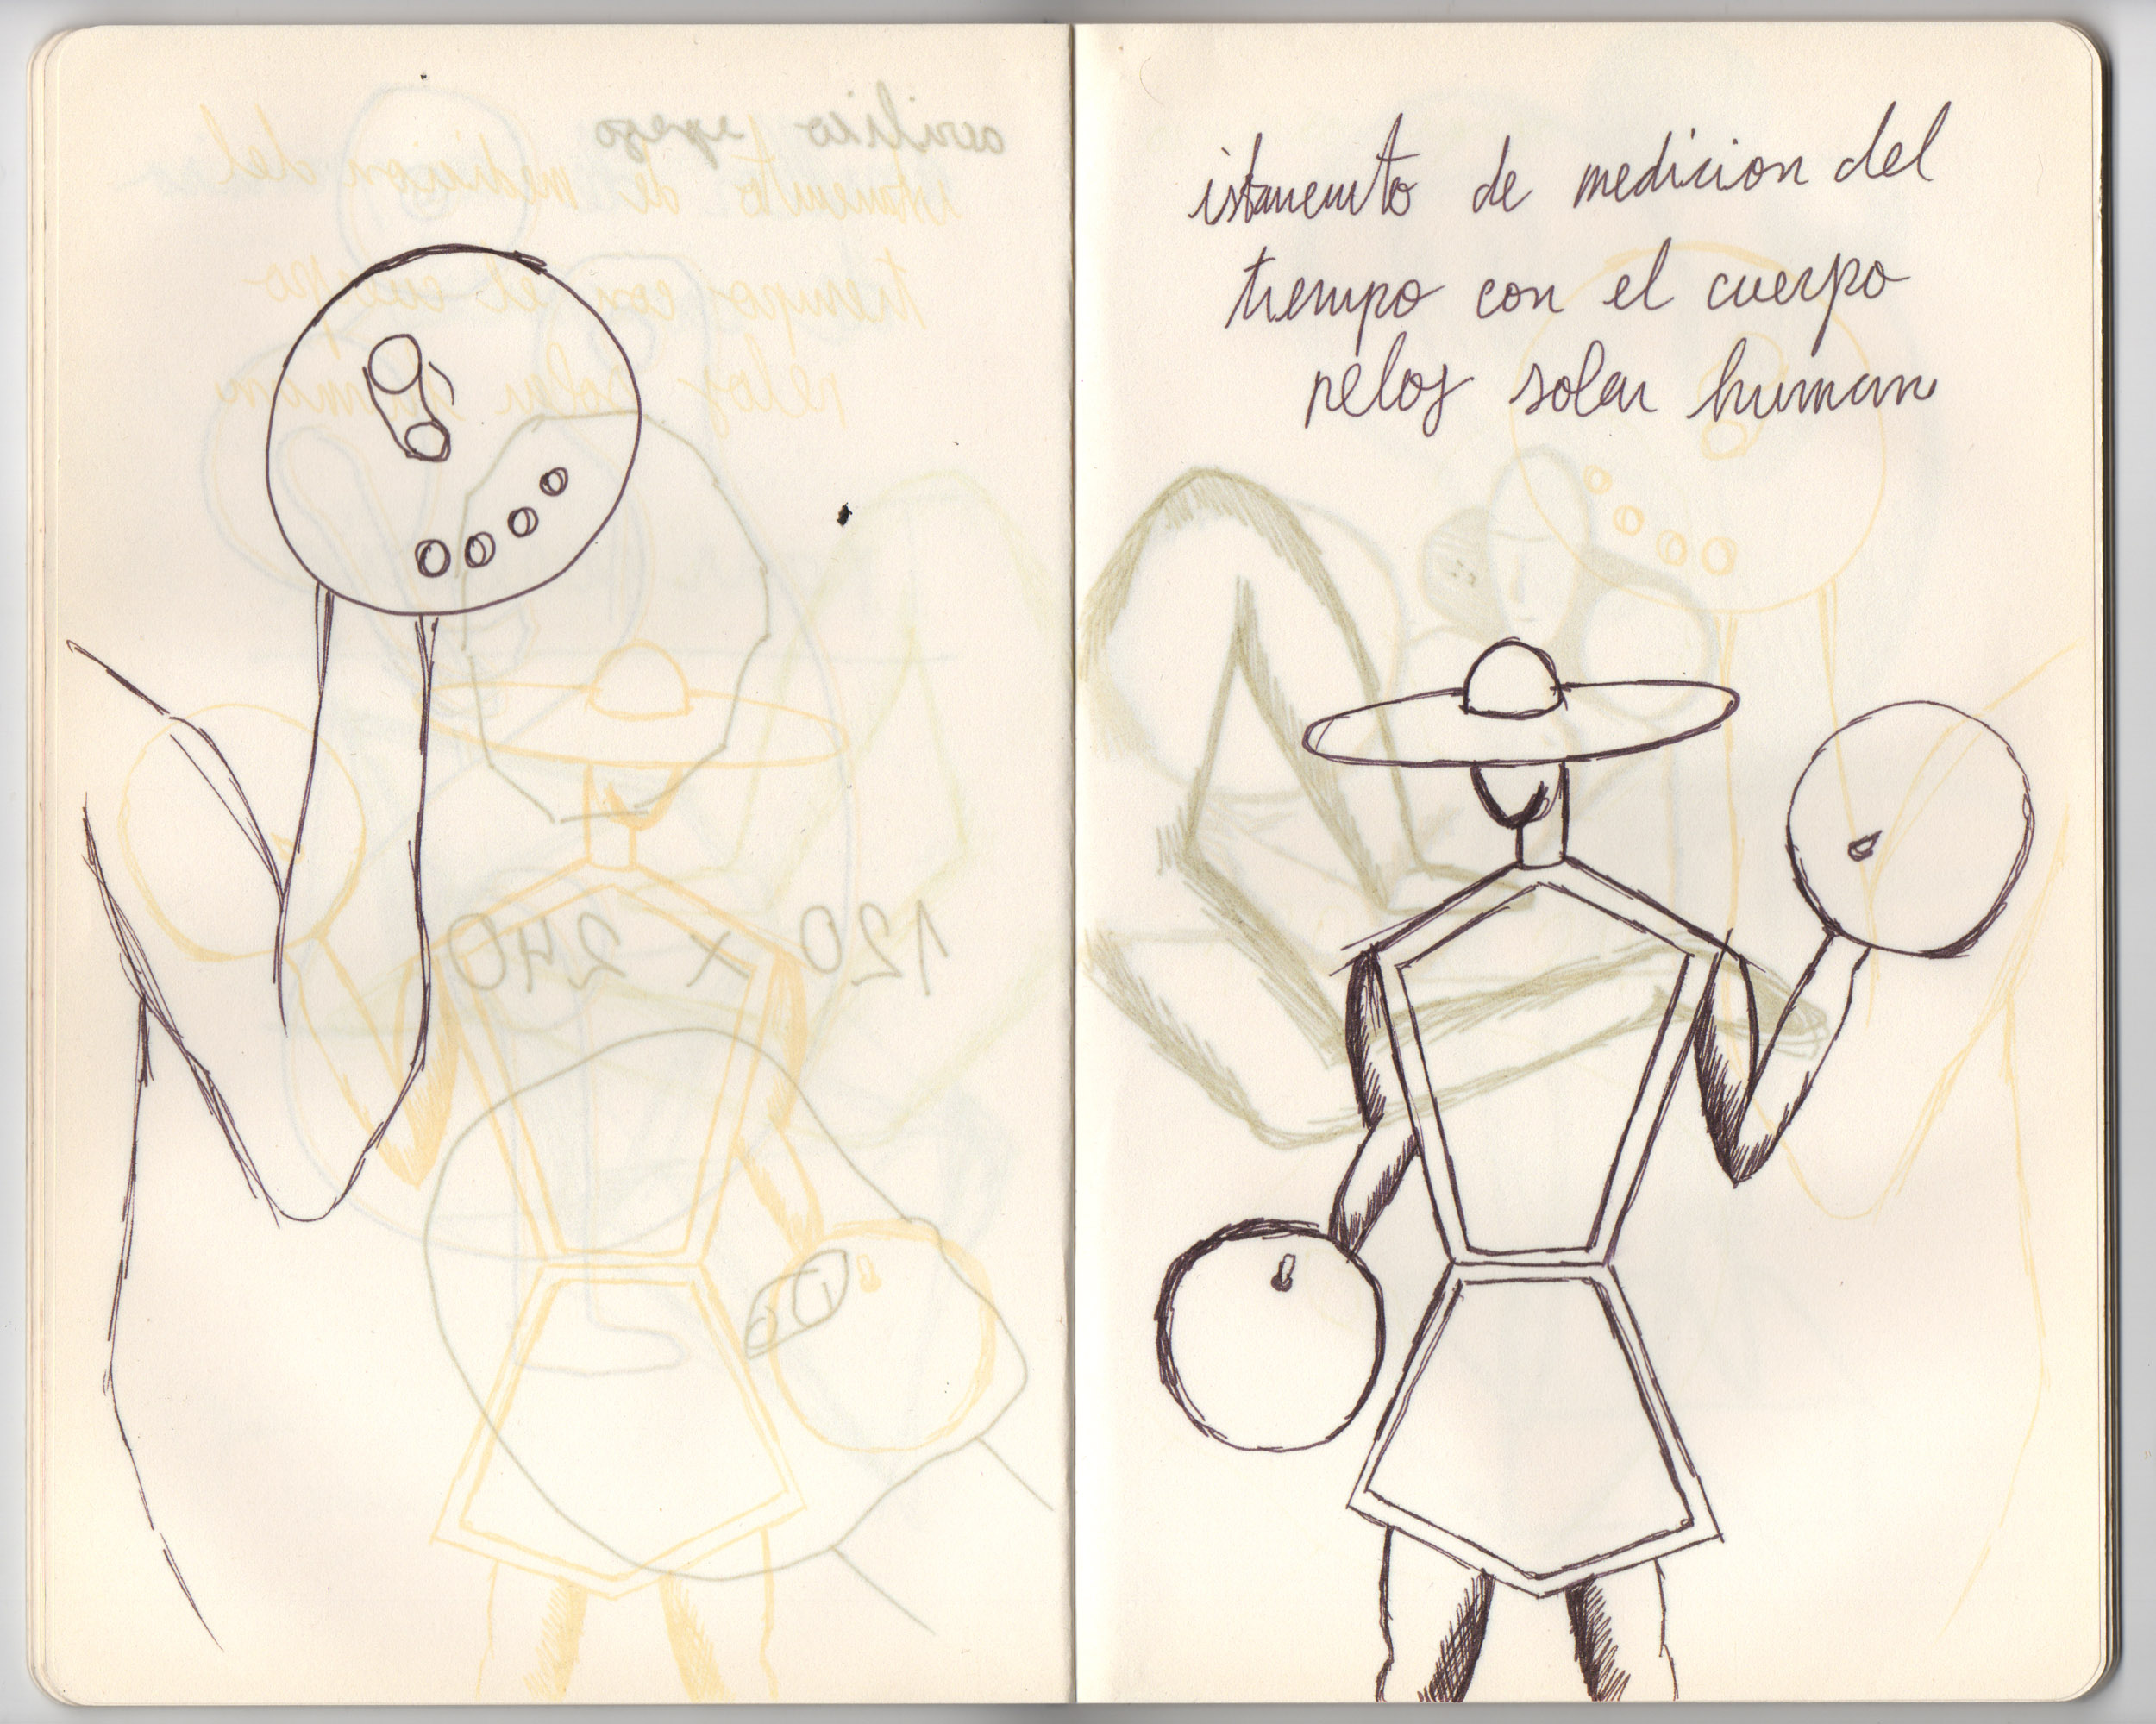 120 x 240
de medicion del
tiempo con el cuerpo
reloj solar humano